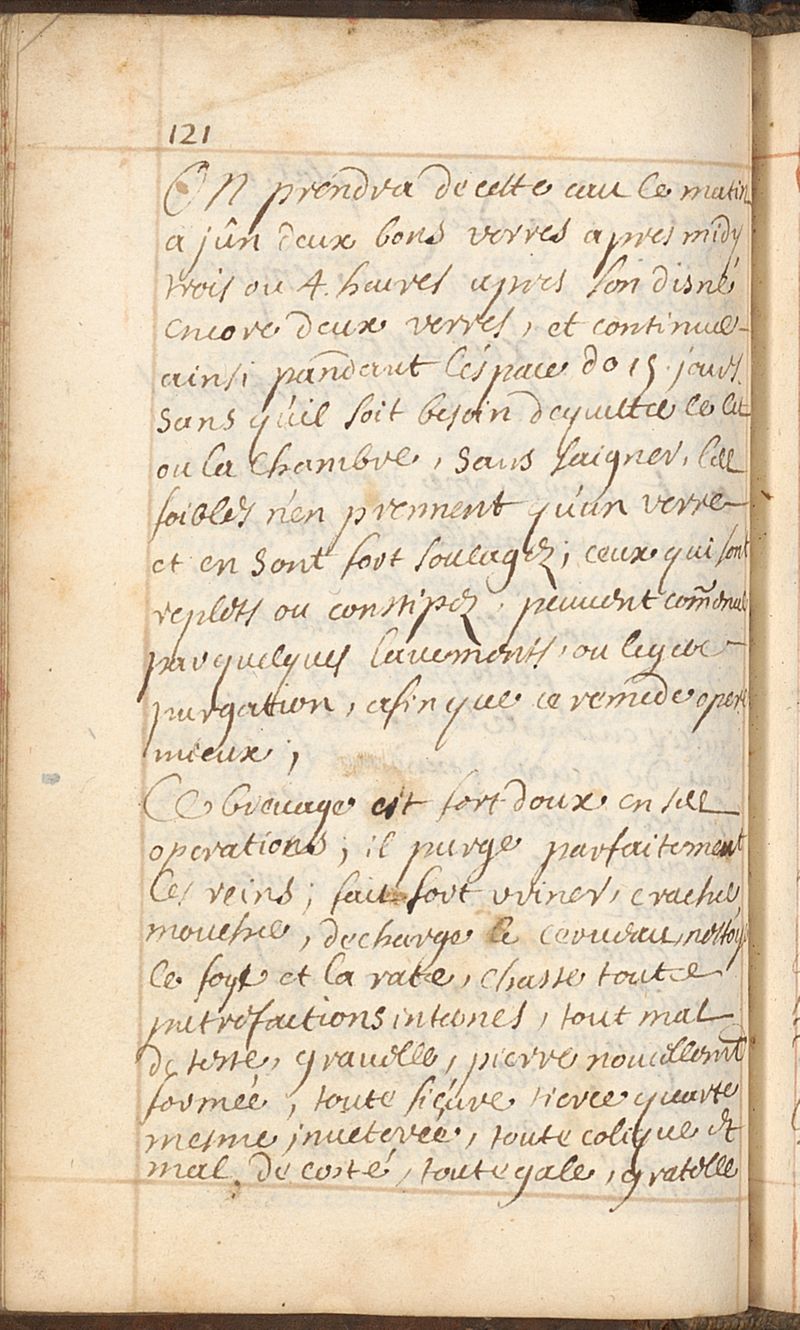 121
On prendra de cette eau le matin
a jûn deux bons verres apres midy
trois ou 4. heures apres son disné
encore deux verres, et continue
ainsi pandant léspace do 15. jours.
sans qu'il soit besoin dequitter le lit
ou la chambre, sans saigner, les
foibles n'en prennent qu'un verre
et en sont fort soulagez; ceux qui sont
replets ou constipez, peuuent com̃encer
par quelques lauements, ou legere
purgation, afin que ce remede opere
mieux;
Ce breuuage est fort doux en ses
operations; il purge parfaitement
les reins; fait fort vriner, cracher,
moucher, decharge le cerueau, nettoye
le foye et la rate, chasse toute
putrefactions internes, tout mal
de teste, grauelle, pierre nouuellement
formée, toute fiéure tierce quarte
mesme jnueterée, toute colique et
mal de costé, toute gale, gratelle